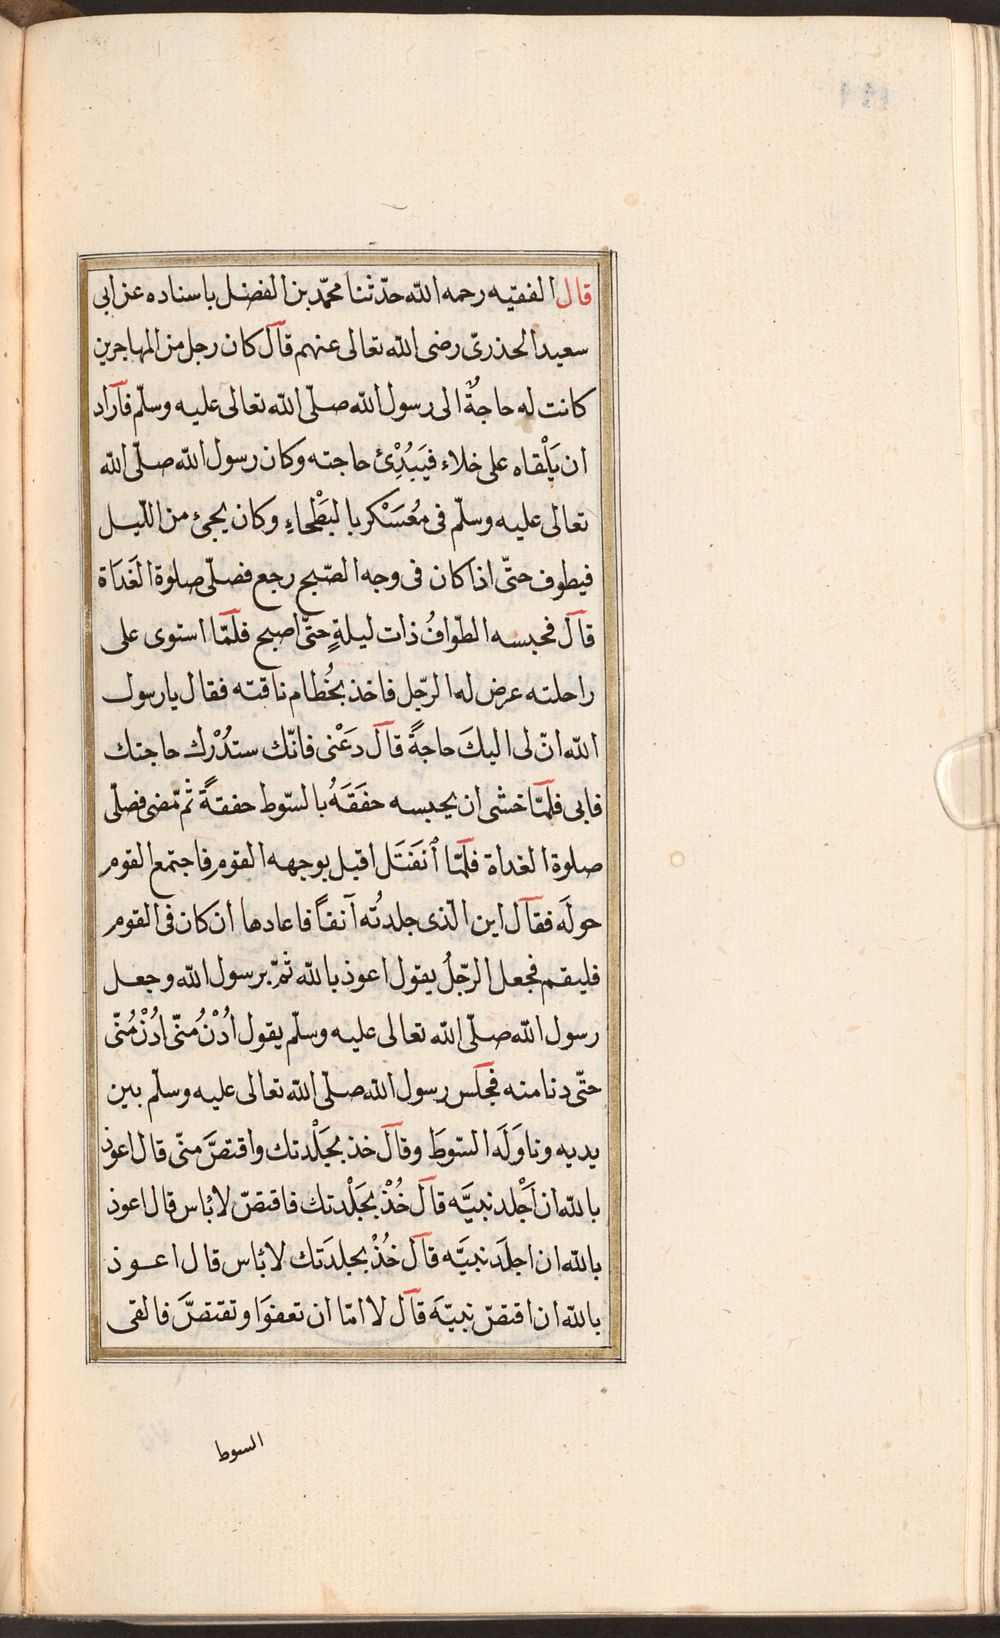 قال الفقيه رحمه الله حدّثنا محمّد بن الفضل باسناده عن ابى
سعيد الحذرىّ رضى الله تعالى عنهم قال كان رجل من المهاجرين
كانت له حاجةٌ الى رسول الله صلّى الله تعالى عليه وسلّم فاراد
ان يَلْقاه على خلاء فيَبُدِْئ حاجته وكان رسول الله صلّى الله
تعالى عليه وسلّم فى مُعَسَنْكر بالبَطْحاءِ وكان يجئ من اللّيل
فيطوف حتّى اذا كان فى وجه الصّبح رجع فصلّى صلوة الغَدَاة
قال فحبسه الطّوافُ ذات ليلةٍ حتّى اصبح فلمّا استوى على
راحلته عرض له الرّجل فاخذ بخُطام ناقته فقال يا رسول
الله انّ لى اليكَ حاجةً قال دَعْنى فانّك ستدْرك حاجتك
فابى فلمّا خشى ان يحبسه حفَقَهُ بالسّوط حفقةً ثمّ مضى فصلّى
صلوة الغداة فلمّا اْنفَتَل اقبل بوجهه القوم فاجتمع القوم
حولَه فقال اين الّذى جلدتُه آنفاً فاعادها ان كان فى القوم
فليقم فجعل الرّجلُ يقول اعوذ بالله ثمّ برسول الله وجعل
رسول الله صلّى الله تعالى عليه وسلّم يقول اُدْنُ منّى اُدْنُ منّى
حتّى دنا منه فجلس رسول الله صلّى الله تعالى عليه وسلّم بين
يديه وناوَلَه السّوطَ وقال خذ بجَلْدتك واقتصَّ منّى قال اعوذ
بالله ان اَجْلد نبيَّه قال خُذْ بجَلْدتك فاقتصّ لا بُاس قال اعوذ
بالله ان اجلَد نبيَّه قال خُذْ بجلدَتك لا بُاس قال اعوذ
بالله ان اقتصّ نبيّه قال لا امّا ان تعفوَا وتقتصَّ فالقى
السوط